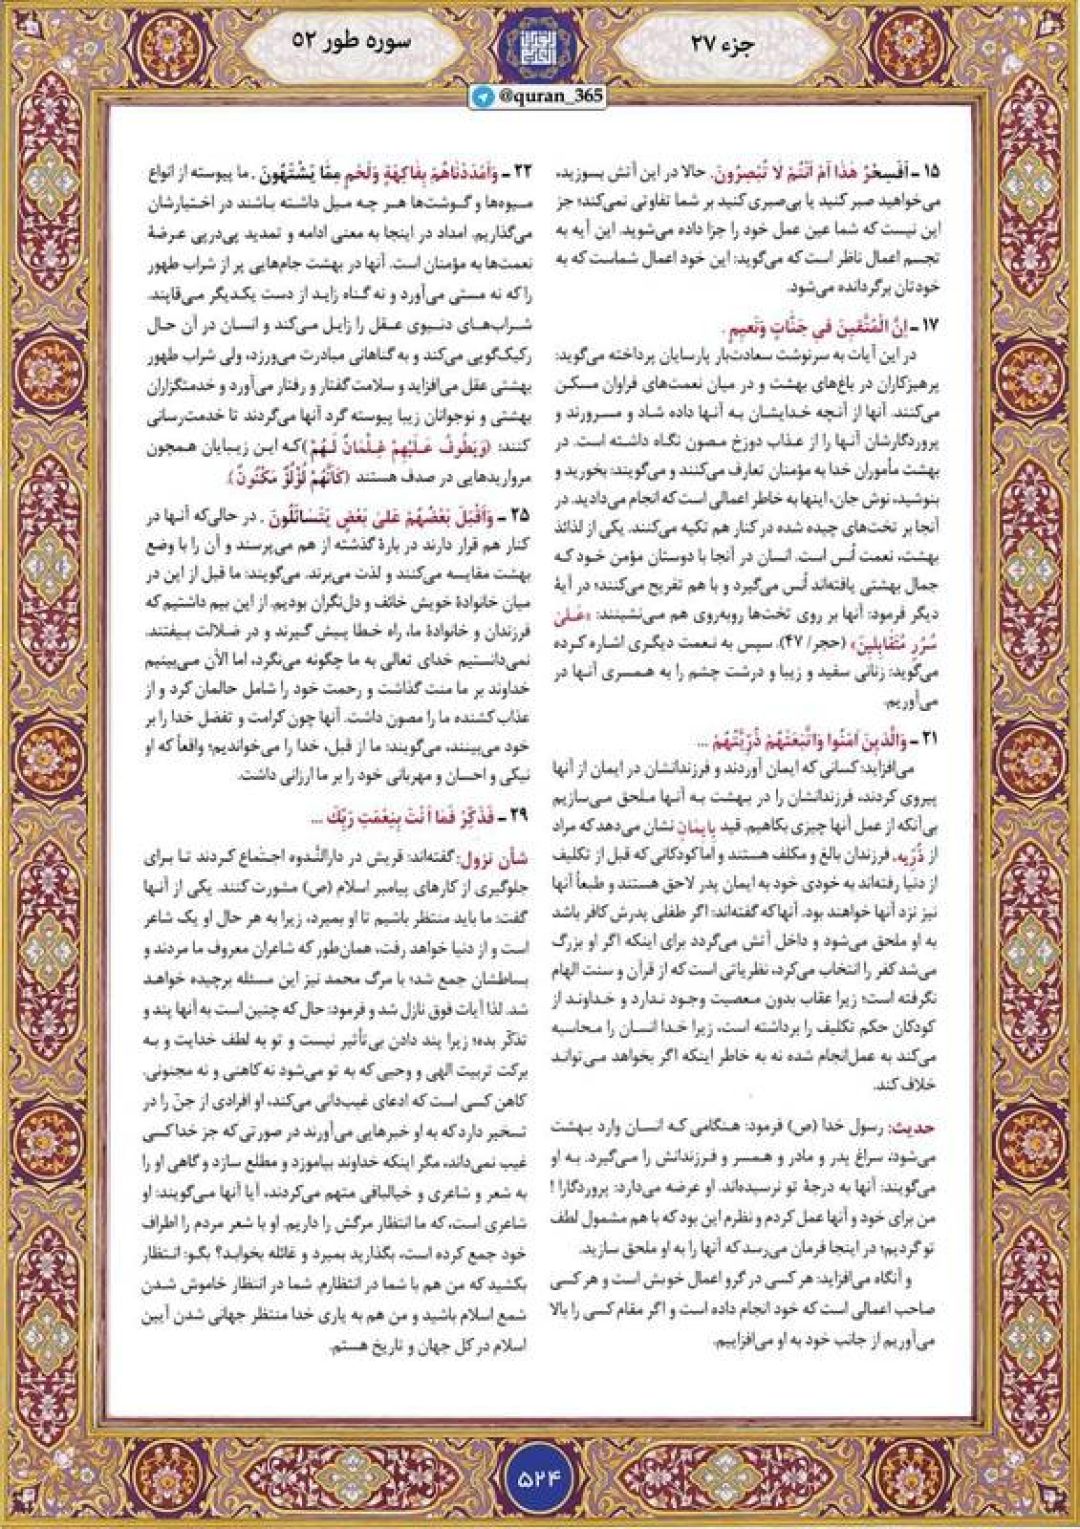 جزء ۲۷
سوره طور ۵۲
@quran_365
۱۵ ـ أَفَسِحْرٌ هَٰذَا أَمْ أَنتُمْ لَا تُبْصِرُونَ. حالا در این آتش بسوزید،
می‌خواهید صبر کنید یا بی‌صبری کنید بر شما تفاوتی نمی‌کند؛ جز
این نیست که شما عین عمل خود را جزا داده می‌شوید. این آیه به
تجسم اعمال ناظر است که می‌گوید: این خود اعمال شماست که به
خودتان برگردانده می‌شود.
۱۷ ـ إِنَّ الْمُتَّقِينَ فِي جَنَّاتٍ وَنَعِيمٍ .
در این آیات به سرنوشت سعادت‌بار پارسایان پرداخته می‌گوید:
پرهیزکاران در باغ‌های بهشت و در میان نعمت‌های فراوان مسکن
می‌کنند. آنها از آنچه خدایشان به آنها داده شاد و مسرورند و
پروردگارشان آنها را از عذاب دوزخ مصون نگاه داشته است. در
بهشت مأموران خدا به مؤمنان تعارف می‌کنند و می‌گویند: بخورید و
بنوشید، نوش جان، اینها به خاطر اعمالی است که انجام می‌دادید. در
آنجا بر تخت‌های چیده شده در کنار هم تکیه می‌کنند. یکی از لذائذ
بهشت، نعمت اُنس است. انسان در آنجا با دوستان مؤمن خود که
جمال بهشتی یافته‌اند اُنس می‌گیرد و با هم تفریح می‌کنند؛ در آیهٔ
دیگر فرمود: آنها بر روی تخت‌ها روبه‌روی هم می‌نشینند: «عَلَىٰ
سُرُرٍ مُتَقَابِلِينَ» (حجر/ ۴۷). سپس به نعمت دیگری اشاره کرده
می‌گوید: زنانی سفید و زیبا و درشت چشم را به همسری آنها در
می‌آوریم.
۲۱ ـ وَالَّذِينَ آمَنُوا وَاتَّبَعَتْهُمْ ذُرِّيَّتُهُمْ ...
می‌افزاید: کسانی که ایمان آوردند و فرزندانشان در ایمان از آنها
پیروی کردند، فرزندانشان را در بهشت به آنها ملحق می‌سازیم
بی‌آنکه از عمل آنها چیزی بکاهیم. قید بِایمَانٍ نشان می‌دهد که مراد
از ذُرّیه، فرزندان بالغ و مکلف هستند و اما کودکانی که قبل از تکلیف
از دنیا رفته‌اند به خودی خود به ایمان پدر لاحق هستند و طبعاً آنها
نیز نزد آنها خواهند بود. آنها که گفته‌اند: اگر طفلی پدرش کافر باشد
به او ملحق می‌شود و داخل آتش می‌گردد برای اینکه اگر او بزرگ
می‌شد کفر را انتخاب می‌کرد، نظریاتی است که از قرآن و سنت الهام
نگرفته است؛ زیرا عقاب بدون معصیت وجود ندارد و خداوند از
کودکان حکم تکلیف را برداشته است، زیرا خدا انسان را محاسبه
می‌کند به عمل‌انجام شده نه به خاطر اینکه اگر بخواهد می‌تواند
خلاف کند.
حدیث: رسول خدا (ص) فرمود: هنگامی که انسان وارد بهشت
می‌شود، سراغ پدر و مادر و همسر و فرزندانش را می‌گیرد. به او
می‌گویند: آنها به درجهٔ تو نرسیده‌اند. او عرضه می‌دارد: پروردگارا !
من برای خود و آنها عمل کردم و نظرم این بود که با هم مشمول لطف
تو گردیم؛ در اینجا فرمان می‌رسد که آنها را به او ملحق سازید.
و آنگاه می‌افزاید: هر کسی در گرو اعمال خویش است و هر کسی
صاحب اعمالی است که خود انجام داده است و اگر مقام کسی را بالا
می‌آوریم از جانب خود به او می‌افزاییم.
۲۲ ـ وَأَمْدَدْنَاهُمْ بِفَاكِهَةٍ وَلَحْمٍ مِمَّا يَشْتَهُونَ . ما پیوسته از انواع
میوه‌ها و گوشت‌ها هر چه میل داشته باشند در اختیارشان
می‌گذاریم. امداد در اینجا به معنی ادامه و تمدید پی‌درپی عرضهٔ
نعمت‌ها به مؤمنان است. آنها در بهشت جام‌هایی پر از شراب طهور
را که نه مستی می‌آورد و نه گناه زاید از دست یکدیگر می‌قایند.
شراب‌های دنیوی عقل را زایل می‌کند و انسان در آن حال
رکیک‌گویی می‌کند و به گناهانی مبادرت می‌ورزد، ولی شراب طهور
بهشتی عقل می‌افزاید و سلامت گفتار و رفتار می‌آورد و خدمتگزاران
بهشتی و نوجوانان زیبا پیوسته گرد آنها می‌گردند تا خدمت‌رسانی
کنند؛ (وَيَطُوفُ عَلَيْهِمْ غِلْمَانٌ لَهُمْ) که این زیبایان همچون
مرواریدهایی در صدف هستند (كَأَنَّهُمْ لُؤْلُؤٌ مَكْنُونٌ).
۲۵ ـ وَأَقْبَلَ بَعْضُهُمْ عَلَىٰ بَعْضٍ يَتَسَائَلُونَ . در حالی‌که آنها در
کنار هم قرار دارند در بارهٔ گذشته از هم می‌پرسند و آن را با وضع
بهشت مقایسه می‌کنند و لذت می‌برند. می‌گویند: ما قبل از این در
میان خانوادهٔ خویش خائف و دل‌نگران بودیم. از این بیم داشتیم که
فرزندان و خانوادهٔ ما، راه خطا پیش گیرند و در ضلالت بیفتند.
نمی‌دانستیم خدای تعالی به ما چگونه می‌نگرد، اما الآن می‌بینیم
خداوند بر ما منت گذاشت و رحمت خود را شامل حالمان کرد و از
عذاب کشنده ما را مصون داشت. آنها چون کرامت و تفضل خدا را بر
خود می‌بینند، می‌گویند: ما از قبل، خدا را می‌خواندیم؛ واقعاً که او
نیکی و احسان و مهربانی خود را بر ما ارزانی داشت.
۲۹ ـ فَذَكِّرْ فَمَا أَنْتَ بِنِعْمَتِ رَبِّكَ ...
شأن نزول: گفته‌اند: قریش در دارالنّدوه اجتماع کردند تا برای
جلوگیری از کارهای پیامبر اسلام (ص) مشورت کنند. یکی از آنها
گفت: ما باید منتظر باشیم تا او بمیرد، زیرا به هر حال او یک شاعر
است و از دنیا خواهد رفت، همان‌طور که شاعران معروف ما مردند و
بساطشان جمع شد؛ با مرگ محمد نیز این مسئله برچیده خواهد
شد. لذا آیات فوق نازل شد و فرمود: حال که چنین است به آنها پند و
تذکّر بده؛ زیرا پند دادن بی‌تأثیر نیست و تو به لطف خدایت و به
برکت تربیت الهی و وحیی که به تو می‌شود نه کاهنی و نه مجنونی.
کاهن کسی است که ادعای غیب‌دانی می‌کند، او افرادی از جنّ را در
تسخیر دارد که به او خبرهایی می‌آورند در صورتی که جز خدا کسی
غیب نمی‌داند، مگر اینکه خداوند بیاموزد و مطلع سازد و گاهی او را
به شعر و شاعری و خیالبافی متهم می‌کردند، آیا آنها می‌گویند: او
شاعری است، که ما انتظار مرگش را داریم. او با شعر مردم را اطراف
خود جمع کرده است، بگذارید بمیرد و غائله بخوابد؟ بگو: انتظار
بکشید که من هم با شما در انتظارم. شما در انتظار خاموش شدن
شمع اسلام باشید و من هم به یاری خدا منتظر جهانی شدن آیین
اسلام در کل جهان و تاریخ هستم.
۵۲۴